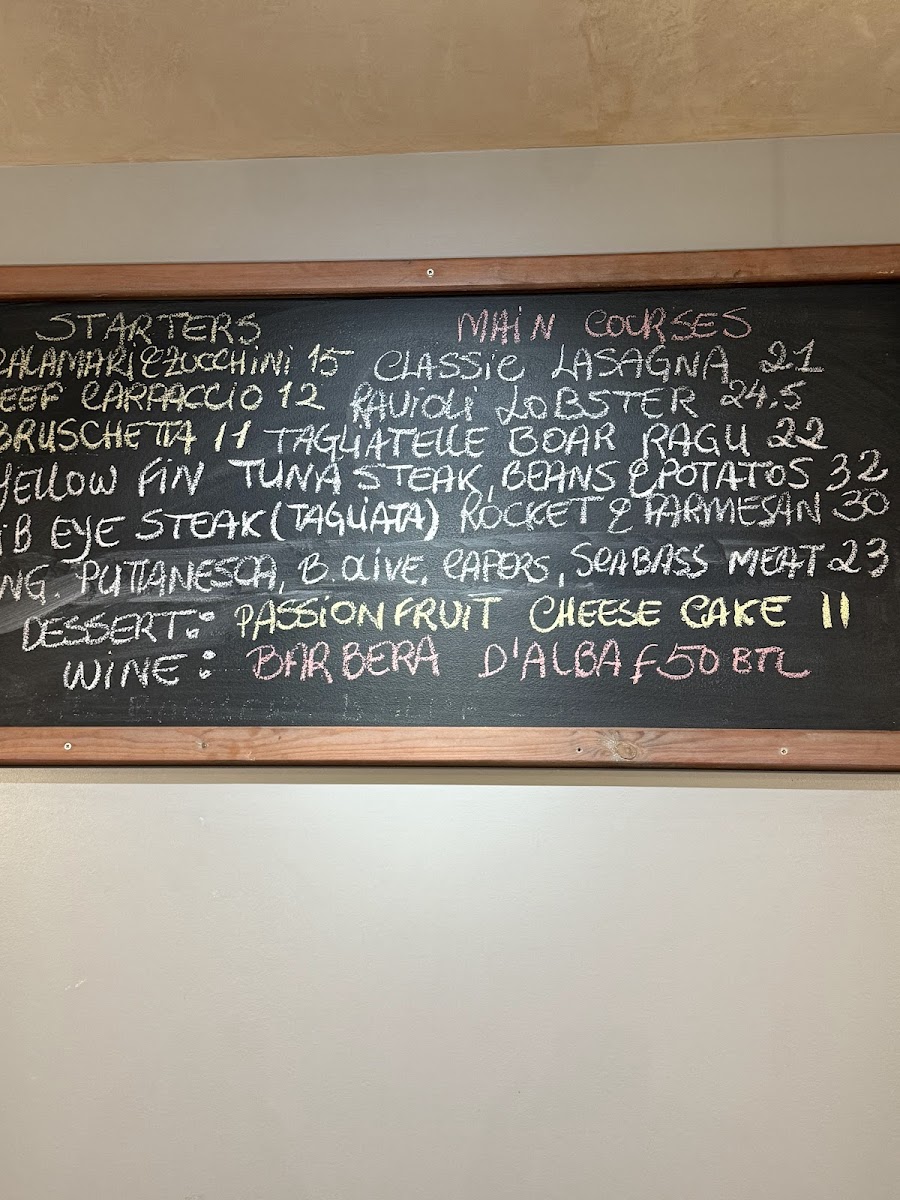 STARTERS MAIN COURSES
CALAMARI & ZUCCHINI 15 CLASSIC LASAGNA 21
EEF CARPACCIO 12 RAVIOLI LOBSTER 24.5
BRUSCHETTA 11 TAGLIATELLE BOAR RAGU 22
YELLOW FIN TUNA STEAK, BEANS & POTATOS 32
IB EYE STEAK (TAGLIATA) ROCKET & PARMESAN 30
NG. PUTTANESCA, B. OLIVE, CAPERS, SEABASS MEAT 23
DESSERT: PASSION FRUIT CHEESE CAKE 11
WINE: BARBERA D'ALBA £50 BTL